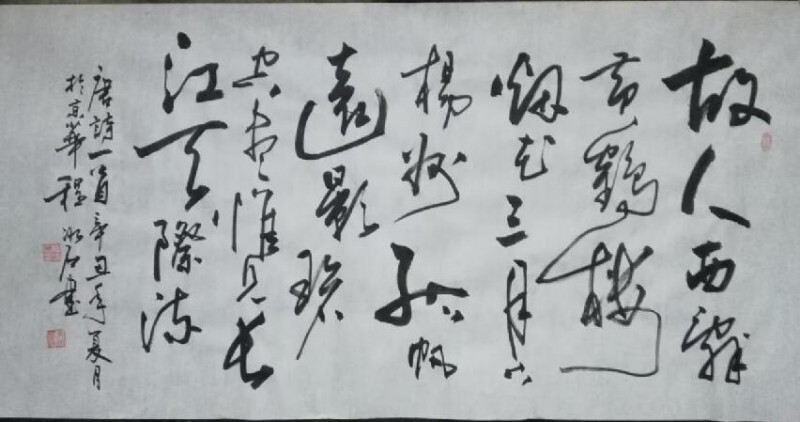 故人西辭
黃鶴樓
烟花三月下
楊州孤帆
遠影碧
空盡惟見長
江天際流
唐詩一首辛丑年夏月
於京華程冰石書